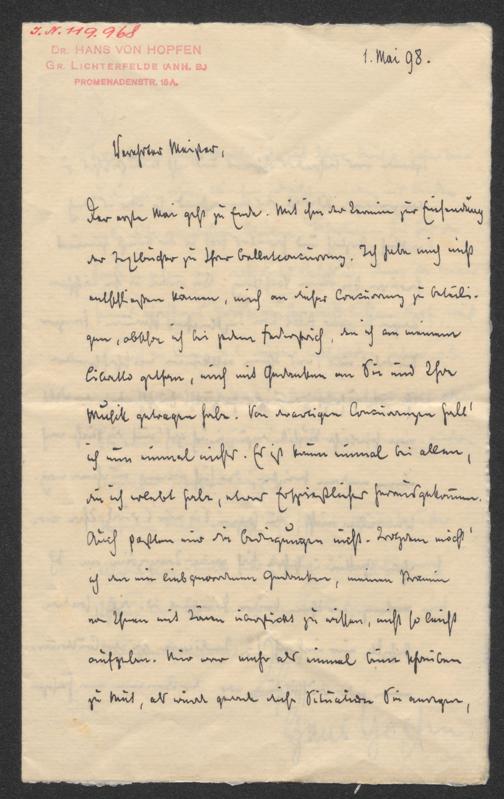 J.N. 119.968
DR. HANS VON HOPFEN
GR. LICHTERFELDE (ANH. B.)
PROMENADENSTR. 16A.
1. Mai 98.
Verehrter Meister,
Der erste Mai geht zu Ende. Mit ihm der Termin zur Einsendung
der Textbücher zu Ihrer Balletconcurrenz. Ich habe mich nicht
entschließen können, mich an dieser Concurrenz zu beteili-
gen, obschon ich bei jedem Federstrich, den ich an meinem
Libretto gethan, mich mit Gedanken an Sie und Ihre
Musik getragen habe. Von derartigen Concurrenzen halt'
ich nun einmal nichts. Es ist kaum einmal bei allen,
die ich erlebt habe, etwas Ersprießliches herausgekommen.
Auch paßten mir die Bedingungen nicht. Trotzdem möcht'
ich den mir liebgewordenen Gedanken, meinen
von Ihnen mit Tönen überstickt zu wissen, nicht so leicht
aufgeben. Mir war mehr als einmal beim Schreiben
zu Mut, als würde gerade diese Situation Sie anregen,